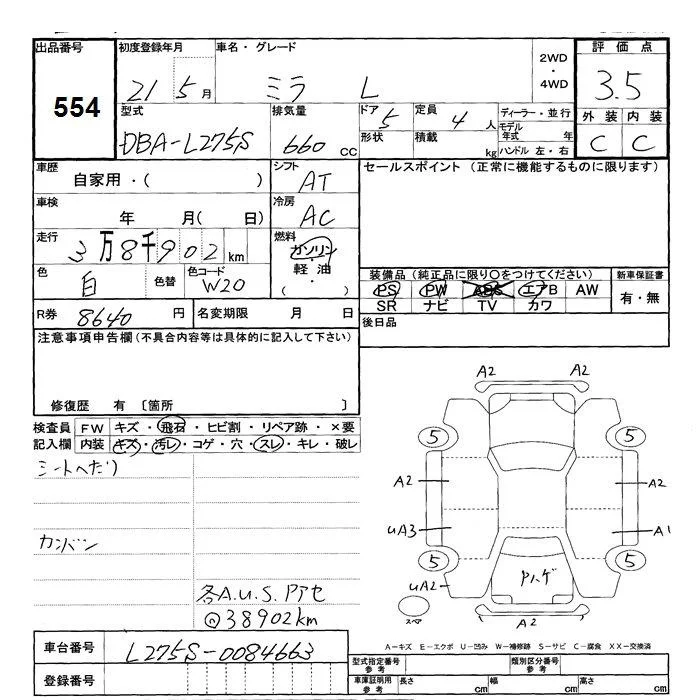 出品番号
554
初度登録年月
21 5月
車名・グレード
ミラ L
2WD
・
4WD
評価点
3.5
外装 内装
C C
型式
DBA-L275S
排気量
660 CC
ドア 5
形状
定員 4 人
積載 kg
ディーラー・並行
モデル年式 年
ハンドル 左・右
車歴
自家用・( )
シフト
AT
セールスポイント (正常に機能するものに限ります)
車検
年 月( 日)
冷房
AC
走行
3万8千902km
燃料
ガソリン
・
軽油
( ・ )
色
白
色替
色コード
W20
装備品 (純正品に限り○をつけてください)
PS PW ABS エアB AW
SR ナビ TV カワ
新車保証書
有・無
R券 8640 円
名変期限 月 日
後日品
注意事項申告欄 (不具合内容等は具体的に記入して下さい)
修復歴 有 〔箇所 〕
検査員
記入欄
FW キズ・飛石・ヒビ割・リペア跡・×要
内装 キズ・汚レ・コゲ・穴・スレ・キレ・破レ
シートへたり
カンバン
各A.U.S.Pアセ
@38902km
A2 A2
5 5
A2 A2
UA3 A1
5 5
UA2
Pハゲ
スペア
A2
A-キズ E-エクボ U-凹み W-補修跡 S-サビ C-腐食 XX-交換済
車台番号
L275S-0084663
登録番号
型式指定番号
参考
類別区分番号
参考
車庫証明用
参考
長さ cm
幅 cm
高さ cm